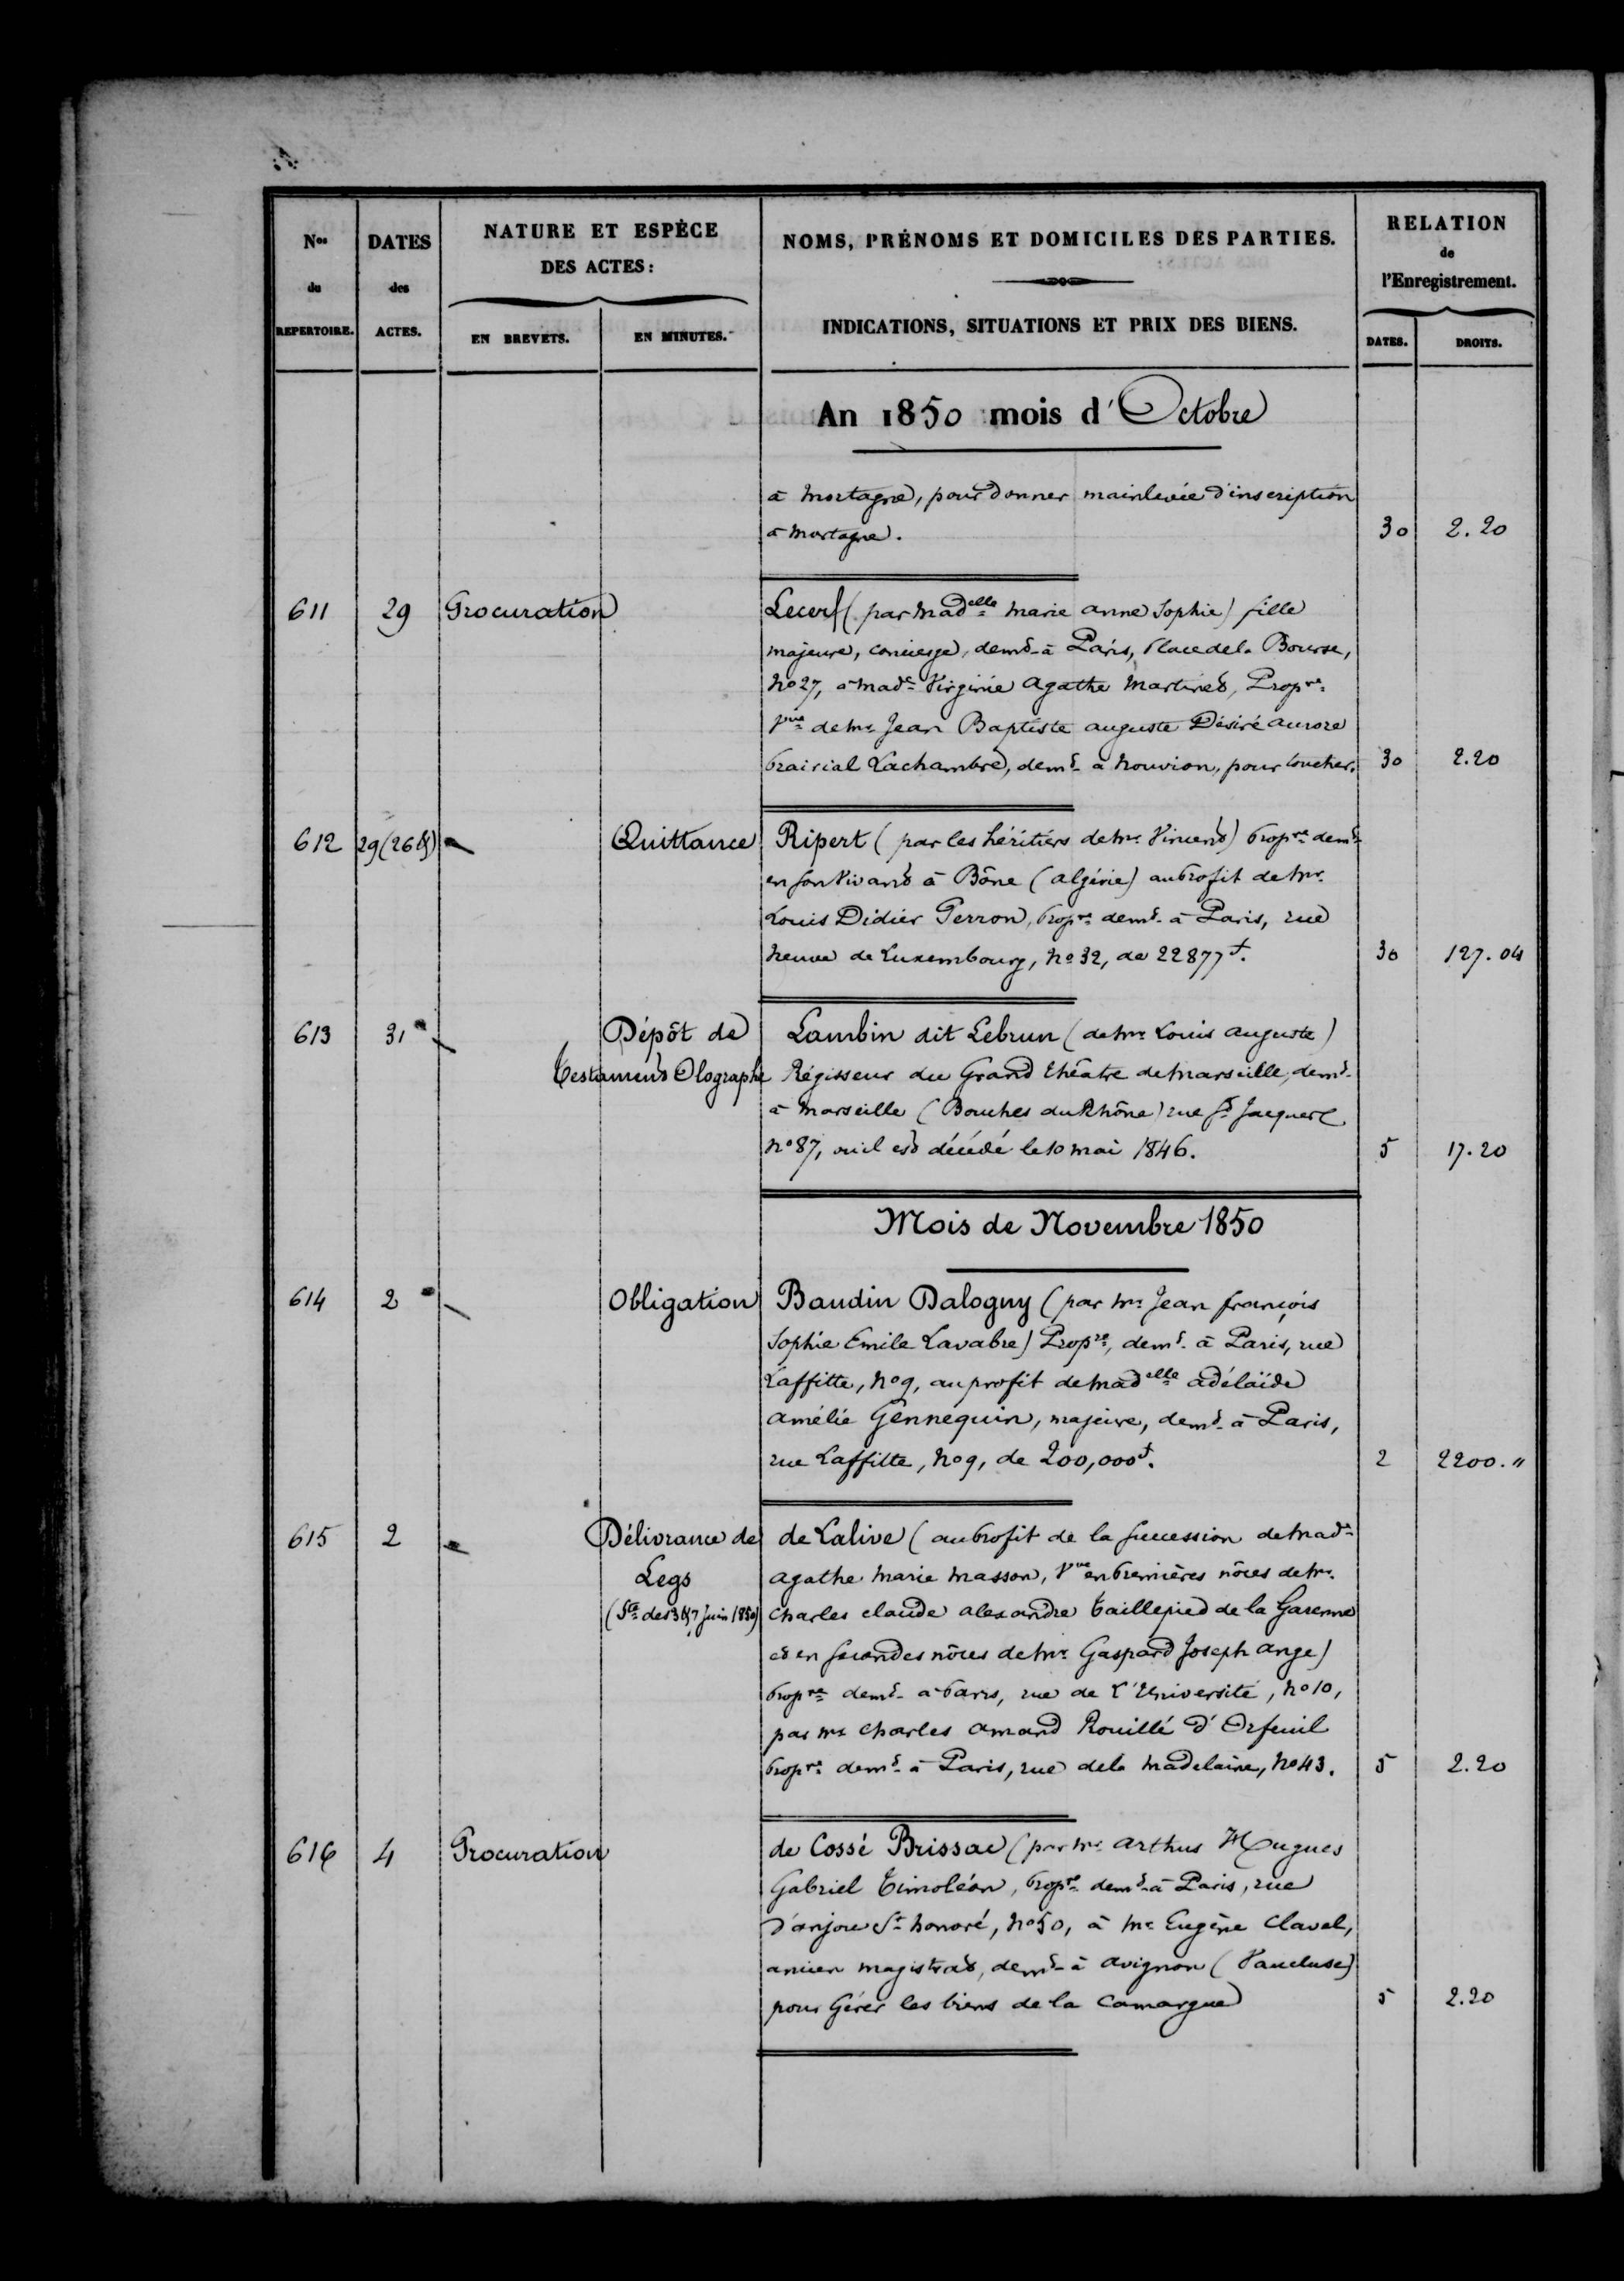 Nos du REPERTOIRE.
DATES des ACTES.
NATURE ET ESPÈCE DES ACTES:
EN BREVETS.
EN MINUTES.
NOMS, PRÉNOMS ET DOMICILES DES PARTIES.
INDICATIONS, SITUATIONS ET PRIX DES BIENS.
RELATION de l'Enregistrement.
DATES.
DROITS.
An 1850 mois d'Octobre
à Mortagne, pour donner mainlevée d'inscription
à Mortagne. 30 2.20
611 29 Procuration Lecerf (par Madelle Marie Anne Sophie) fille
majeure, concierge, demt à Paris, Place de la Bourse,
No 27, à Made Virginie Agathe Martinet, Propre
de Mr Jean Baptiste Auguste Désiré Aurore
Prairial Lachambre, demt à Nouvion, pour toucher. 30 2.20
612 29 (26 &) Quittance Ripert (par les héritiers de Mr Vincent) propre demt
en son vivant à Bône (Algérie) au profit de Mr
Louis Didier Perron, propre demt à Paris, rue
Neuve de Luxembourg, No 32, de 22877 f. 30 127.04
613 31 Dépôt de Lambin dit Lebrun (de Mr Louis Auguste)
Testament Olographe Régisseur du Grand théatre de Marseille, demt
à Marseille (Bouches du Rhône) rue St Jacques
No 87, où il est décédé le 10 mai 1846. 5 17.20
Mois de Novembre 1850
614 2 Obligation Baudin Dalogny (par Mr Jean françois
Sophie Emile Lavabre) Propre, demt à Paris, rue
Laffitte, No 9, au profit de Madelle Adélaïde
Amélie Gennequin, majeure, demt à Paris,
rue Laffitte, No 9, de 200,000 f. 2 2200."
615 2 Délivrance de de Lalive (au profit de la succession de Made
Legs Agathe Marie Masson, Vve en premières nôces de Mr
(Ste des 3 & 7 Juin 1850) Charles Claude Alexandre Taillepied de la Garenne
et en secondes nôces de Mr Gaspard Joseph Ange)
propre demt à Paris, rue de l'Université, No 10,
par Mr Charles Amand Rouillé d'Orfeuil
propre demt à Paris, rue de la Madelaine, No 43. 5 2.20
616 4 Procuration de Cossé Brissac (par Mr Arthus Hugues
Gabriel Timoléon, propre demt à Paris, rue
d'anjou St honoré, No 50, à Mr Eugène Clavel,
ancien magistrat, demt à Avignon (Vaucluse)
pour Gérer les biens de la Camargue 5 2.20